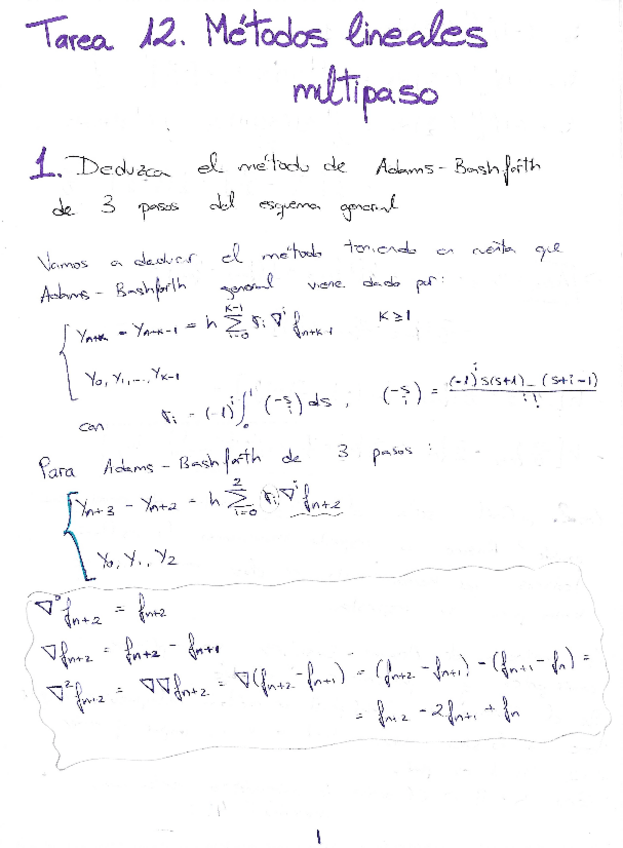 Tarea 12. Métodos lineales
mltipaso
1. Deduzca el método de Adams-Bashforth
de 3 pasos del esquema general
Vamos a deducir el método teniendo en cuenta que
Adams-Bashforth general viene dado por:
y_{n+k} - y_{n+k-1} = h ∑_{i=0}^{k-1} γ_i ∇^i f_{n+k-1} K ≥ 1
y_0, y_1, ..., y_{k-1}
con γ_i = (-1)^i ∫_0^1 (-s i) ds, (-s i) = (-1)^i s(s+1)...(s+i-1) / i!
Para Adams-Bashforth de 3 pasos:
y_{n+3} - y_{n+2} = h ∑_{i=0}^{2} γ_i ∇^i f_{n+2}
y_0, y_1, y_2
∇^0 f_{n+2} = f_{n+2}
∇f_{n+2} = f_{n+2} - f_{n+1}
∇^2 f_{n+2} = ∇∇f_{n+2} = ∇(f_{n+2} - f_{n+1}) = (f_{n+2} - f_{n+1}) - (f_{n+1} - f_n) =
= f_{n+2} - 2f_{n+1} + f_n
1